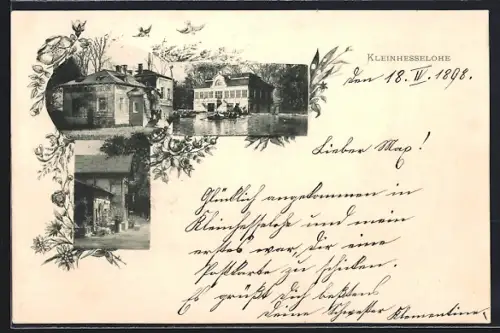 KLEINHESSELOHE
den 18. IV. 1898.
Lieber Max!
Glücklich angekommen in
Kleinhesselohe und mein
erstes war, Dir eine
Postkarte zu schicken.
Es grüßt Dich bestens
Deine Schwester Klementine.